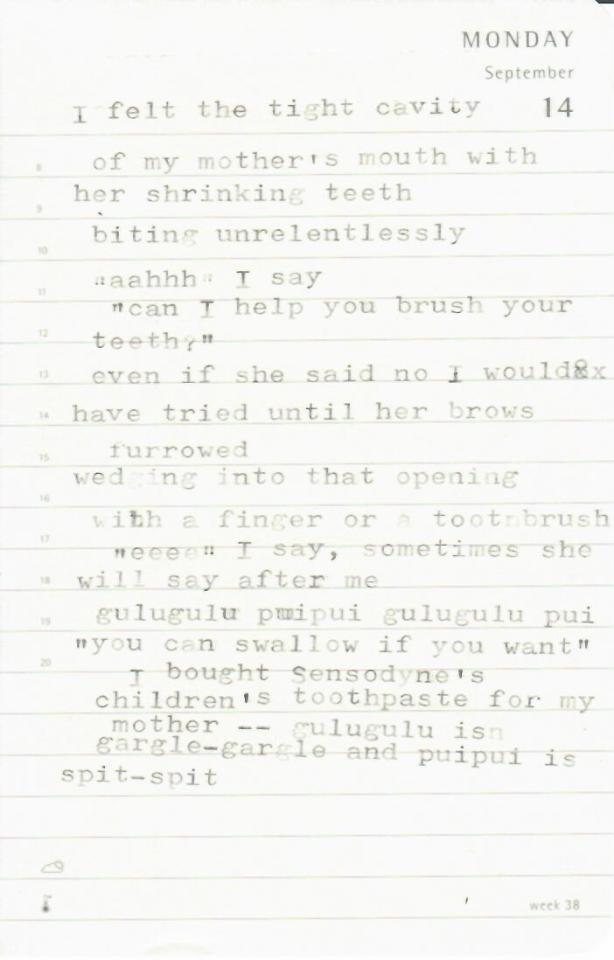 MONDAY
September
I felt the tight cavity 14
8 of my mother's mouth with
her shrinking teeth
9
biting unrelentlessly
10
"aahhh" I say
11
"can I help you brush your
12 teeth?"
13 even if she said no I would&x
14 have tried until her brows
furrowed
15
wedging into that opening
16
with a finger or a toothbrush
17
"eeee" I say, sometimes she
18 will say after me
19 gulugulu puipui gulugulu pui
"you can swallow if you want"
20
I bought Sensodyne's
children's toothpaste for my
mother -- gulugulu isn
gargle-gargle and puipui is
spit-spit
week 38